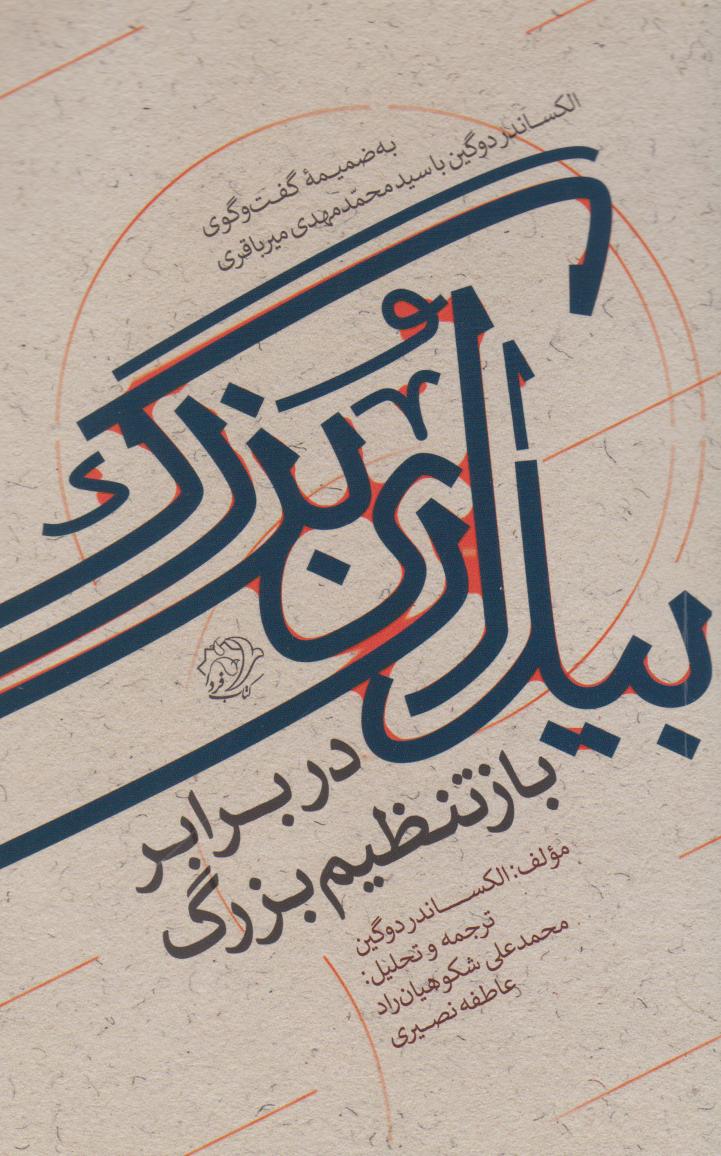 به ضمیمهٔ گفت‌وگوی
الکساندر دوگین با سید محمّدمهدی میرباقری
بیداریِ بُزرگ
کتاب فردا
در برابر
بازتنظیم بزرگ
مؤلف: الکساندر دوگین
ترجمه و تحلیل:
محمدعلی شکوهیان‌راد
عاطفه نصیری